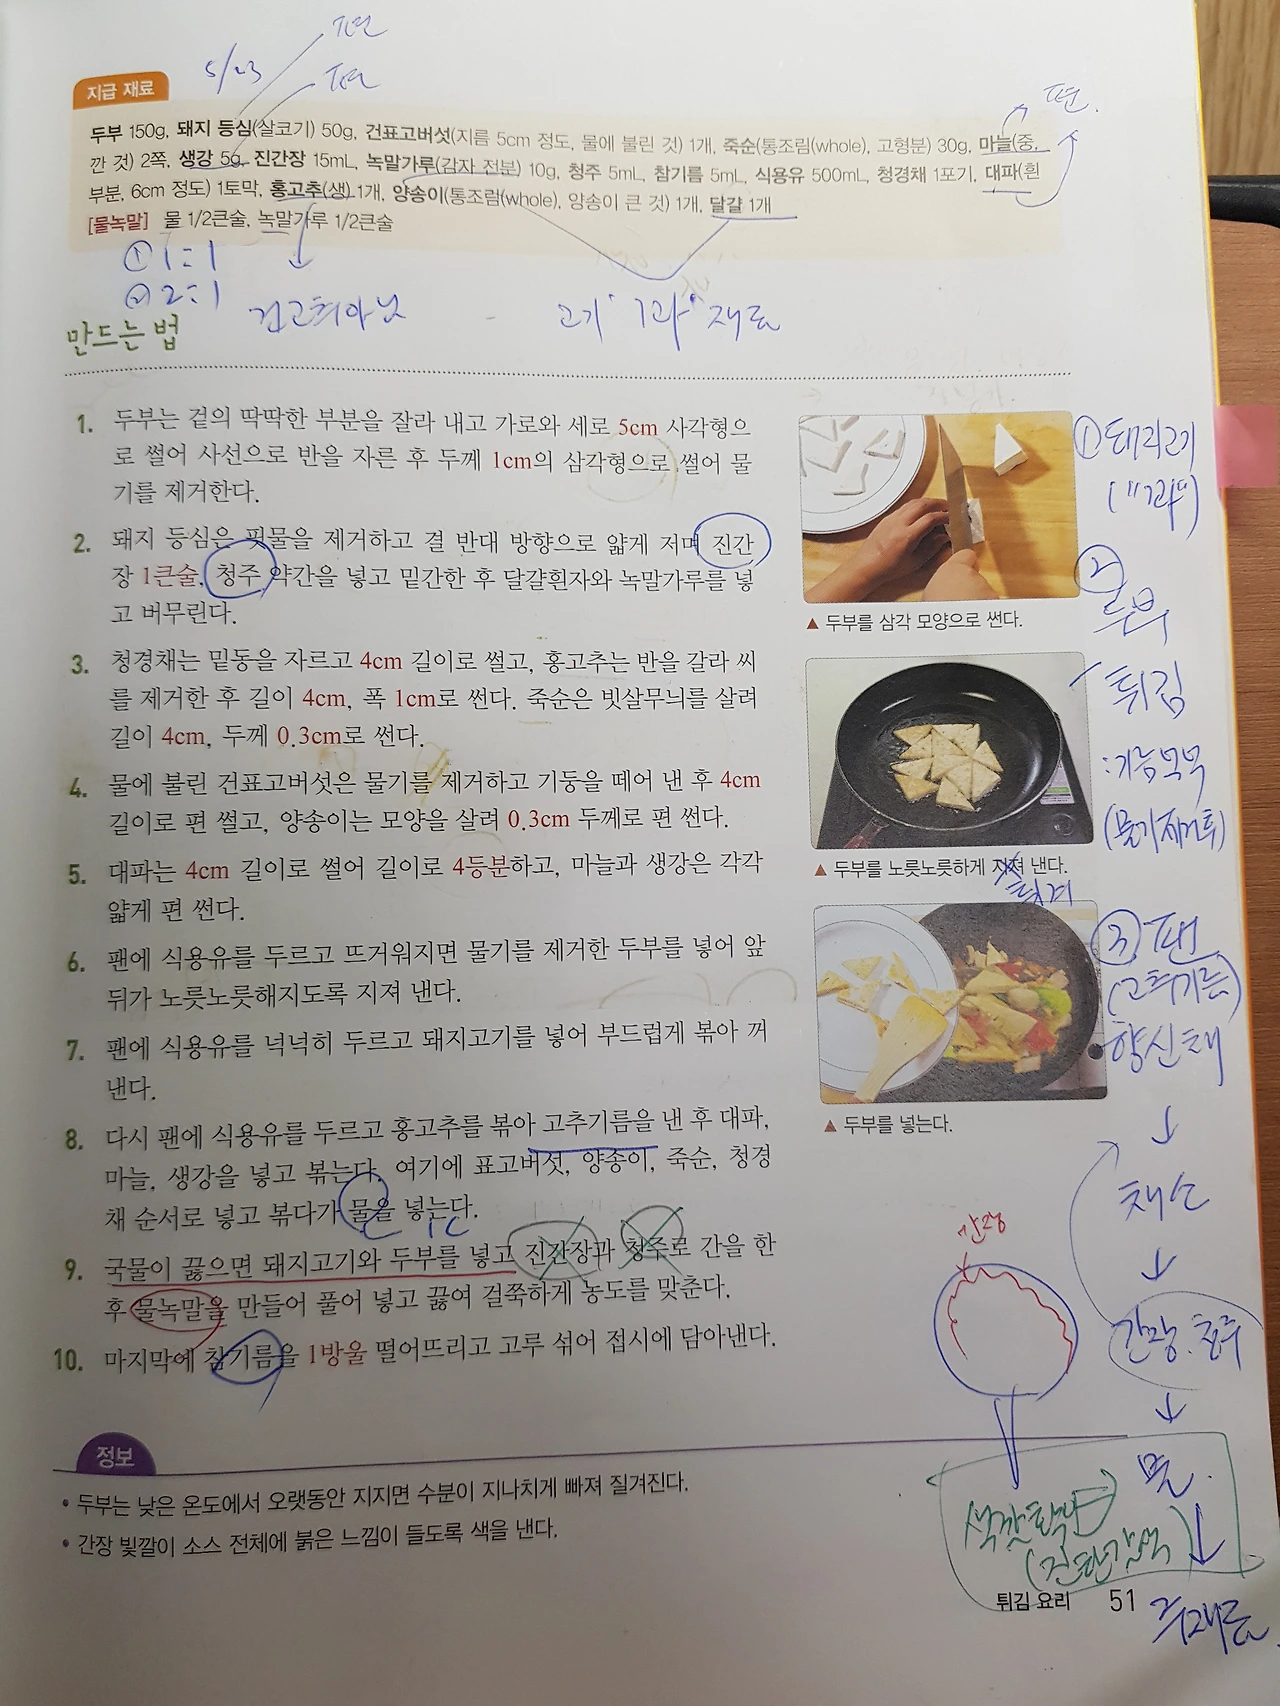 편
5/23
편
지급 재료
편.
두부 150g, 돼지 등심(살코기) 50g, 건표고버섯(지름 5cm 정도, 물에 불린 것) 1개, 죽순(통조림(whole), 고형분) 30g, 마늘(중,
깐 것) 2쪽, 생강 5g, 진간장 15mL, 녹말가루(감자 전분) 10g, 청주 5mL, 참기름 5mL, 식용유 500mL, 청경채 1포기, 대파(흰
부분, 6cm 정도) 1토막, 홍고추(생) 1개, 양송이(통조림(whole), 양송이 큰 것) 1개, 달걀 1개
[물녹말] 물 1/2큰술, 녹말가루 1/2큰술
① 1:1
② 2:1
건고추아님
고기 "1과" 재료
만드는 법
1. 두부는 겉의 딱딱한 부분을 잘라 내고 가로와 세로 5cm 사각형으
로 썰어 사선으로 반을 자른 후 두께 1cm의 삼각형으로 썰어 물
기를 제거한다.
2. 돼지 등심은 핏물을 제거하고 결 반대 방향으로 얇게 저며 진간
장 1큰술, 청주 약간을 넣고 밑간한 후 달걀흰자와 녹말가루를 넣
고 버무린다.
3. 청경채는 밑동을 자르고 4cm 길이로 썰고, 홍고추는 반을 갈라 씨
를 제거한 후 길이 4cm, 폭 1cm로 썬다. 죽순은 빗살무늬를 살려
길이 4cm, 두께 0.3cm로 썬다.
4. 물에 불린 건표고버섯은 물기를 제거하고 기둥을 떼어 낸 후 4cm
길이로 편 썰고, 양송이는 모양을 살려 0.3cm 두께로 편 썬다.
5. 대파는 4cm 길이로 썰어 길이로 4등분하고, 마늘과 생강은 각각
얇게 편 썬다.
6. 팬에 식용유를 두르고 뜨거워지면 물기를 제거한 두부를 넣어 앞
뒤가 노릇노릇해지도록 지져 낸다.
7. 팬에 식용유를 넉넉히 두르고 돼지고기를 넣어 부드럽게 볶아 꺼
낸다.
8. 다시 팬에 식용유를 두르고 홍고추를 볶아 고추기름을 낸 후 대파,
마늘, 생강을 넣고 볶는다. 여기에 표고버섯, 양송이, 죽순, 청경
채 순서로 넣고 볶다가 물을 넣는다.
1C
9. 국물이 끓으면 돼지고기와 두부를 넣고 진간장과 청주로 간을 한
후 물녹말을 만들어 풀어 넣고 끓여 걸쭉하게 농도를 맞춘다.
10. 마지막에 참기름을 1방울 떨어뜨리고 고루 섞어 접시에 담아낸다.
▲ 두부를 삼각 모양으로 썬다.
▲ 두부를 노릇노릇하게 지져 낸다.
튀겨
▲ 두부를 넣는다.
① 돼지고기
("1과")
② 두부
튀김
(물기제거후)
③ 팬
(고추기름)
향신채
↓
채소
↓
간장. 청주
↓
물.
↓
주재료.
간장
색깔확인
(진한갈색)
정보
• 두부는 낮은 온도에서 오랫동안 지지면 수분이 지나치게 빠져 질겨진다.
• 간장 빛깔이 소스 전체에 붉은 느낌이 들도록 색을 낸다.
튀김 요리 51